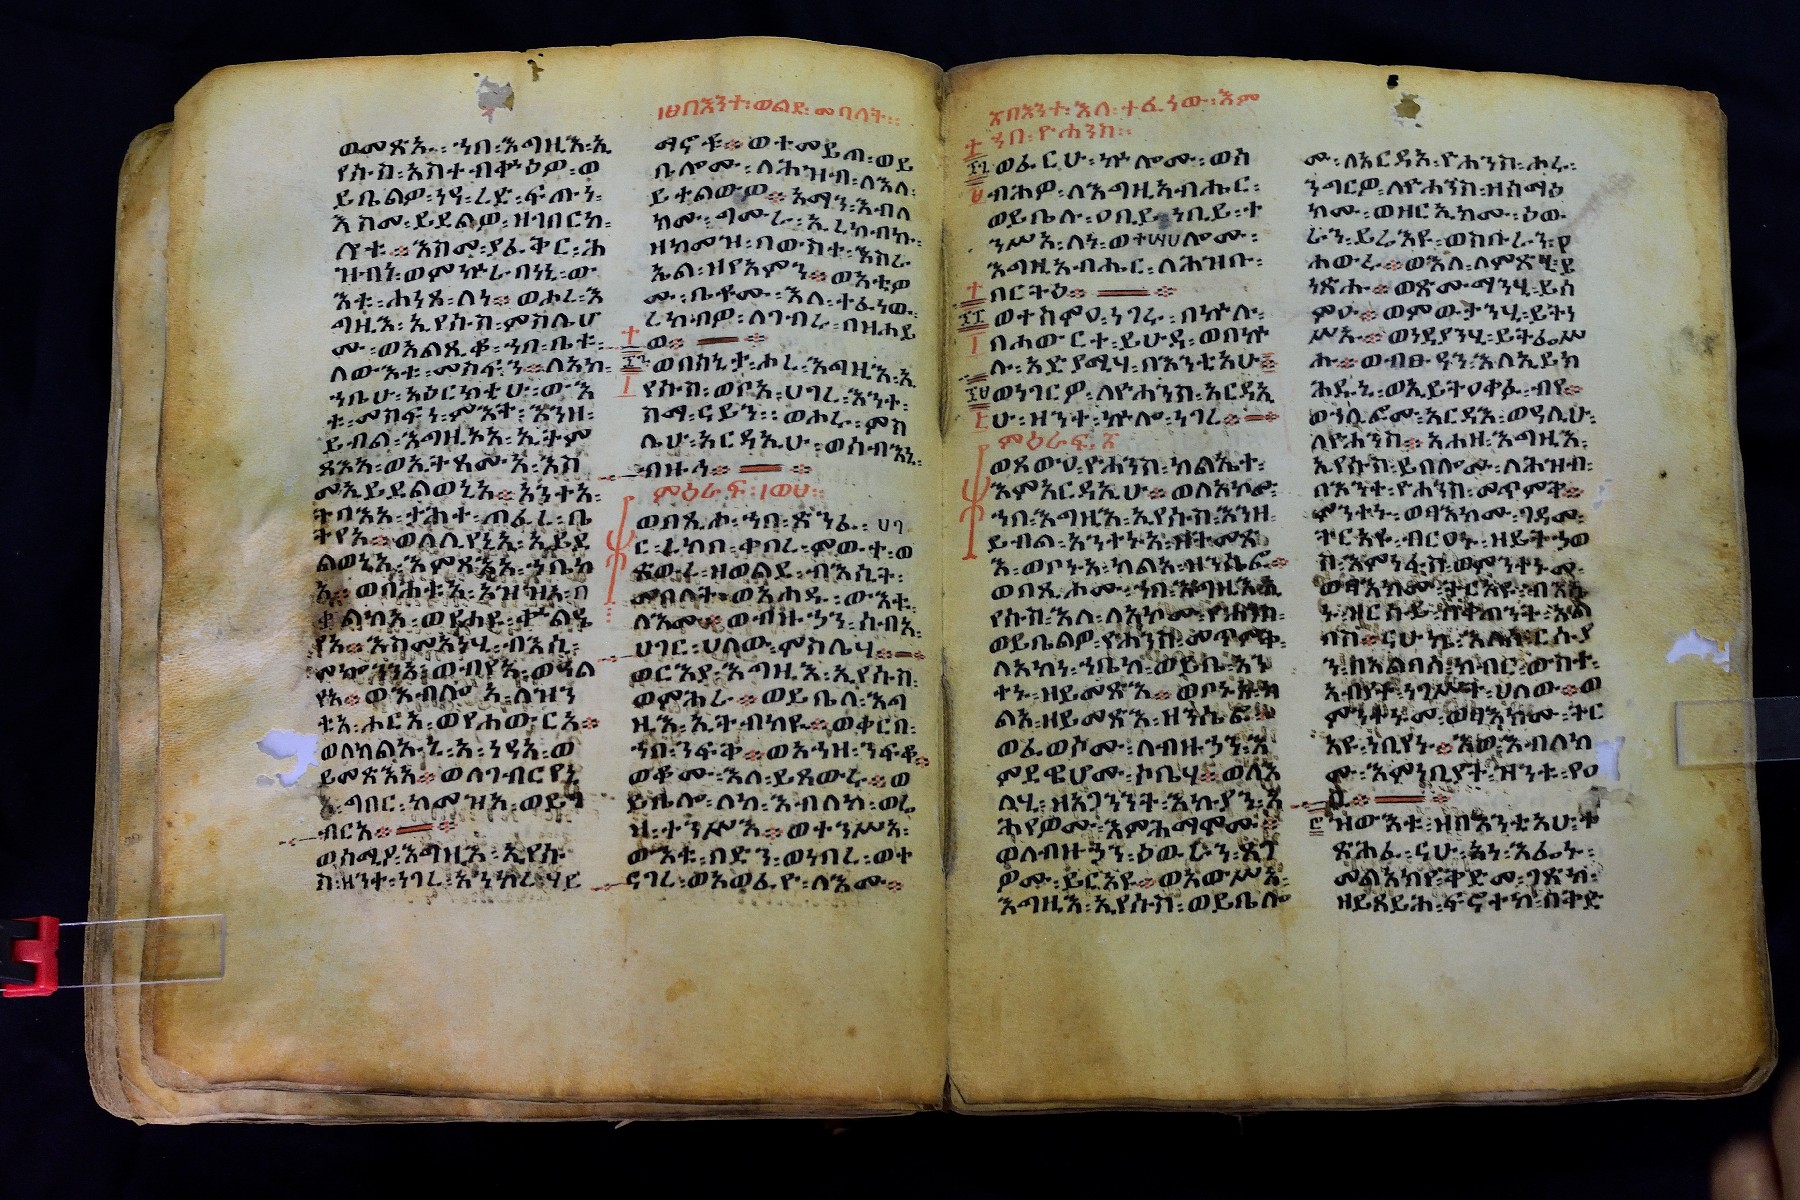 ፲፱በእንተ፡ወልደ፡መበለት።
ወመጽአ፡ ኀበ፡እግዚእ፡ኢ
የሱስ፡አስተብቍዕዎ፡ወ
ይቤልዎ፡ነዓ፡ረድ፡ፍጡነ፡
እስመ፡ይደልዎ፡ዘገበርከ፡
ሎቱ፡ እስመ፡ያፈቅር፡ሕ
ዝብነ፡ወምኵራበነኒ፡ው
እቱ፡ሐነጸ፡ለነ፡ ወሖረ፡እ
ግዚእ፡ኢየሱስ፡ምስሌሆ
ሙ፡ወአልጺቆ፡ኀበ፡ቤቱ፡
ለውእቱ፡መስፍን፡ ለአከ፡
ኀቤሁ፡አዕርክቲሁ፡ውእ
ቱ፡መስፍን፡ምእት፡እንዘ፡
ይብል፡እግዚኦ፡ኢትም
ጻእ፡ወኢትጻሙ፡እስ
መ፡ኢይደልወኒ፡ አንተ፡
ትባእ፡ታሕተ፡ጠፈረ፡ቤ
ትየ፡ ወሊተኒ፡ኢይደ
ልወኒ፡እምጻእ፡ኀቤከ
ወባሕቱ፡አዝዝ፡በ
ቃልከ፡ወየሐዩ፡ቍልዔ
የ፡ እስመ፡አነሂ፡ብእሲ፡
መኰንን፡ወብየ፡ወዓል
የ፡ ወእብሎ፡ለዝን
ቱ፡ሖር፡ወየሐውር፡
ወለካልኡኒ፡ነዓ፡ወ
ይመጽእ፡ ወለገብርየኒ
ግበር፡ከመዝ፡ወይገ
ብር፡
ወሰሚዖ፡እግዚእ፡ኢየሱ
ስ፡ዘንተ፡ነገረ፡አንከረ፡ሃይ
ማኖቶ፡ ወተመይጠ፡ወይ
ቤሎሙ፡ለሕዝብ፡ለእለ፡
ይተልውዎ፡ አማን፡እብለ
ክሙ፡ግሙራ፡ኢረከብኩ፡
ዘከመዝ፡በውስተ፡እስራ
ኤል፡ዘየአምን፡ ወአቲዎ
ሙ፡ቤቶሙ፡እለ፡ተፈነው፡
ረከብዎ፡ለገብሩ፡በዘሐይ
ወ፡
ወበሳኒታ፡ሖረ፡እግዚእ፡ኢ
የሱስ፡ወቦአ፡ሀገረ፡እንተ፡
ስማ፡ናይን፡ ወሖሩ፡ምስ
ሌሁ፡አርዳኢሁ፡ወሰብእ፡
ብዙኅ፡
ምዕራፍ፡፲ወ፱፡
ወበጺሖ፡ኀበ፡ጽንፈ፡ሀገ
ር፡ረከበ፡ቀበረ፡ምውተ፡ወ
ጾውሩ፡ዘወልደ፡ብእሲት፡
መበለት፡ወአሐዱ፡ውእቱ፡
ለእሙ፡ ወብዙኃን፡ሰብአ፡
ሀገር፡ሀለው፡ምስሌሃ፡
ወርእያ፡እግዚእ፡ኢየሱስ፡
ወምሕራ፡ ወይቤላ፡ኢት
ብክዪ፡ ወቀርበ፡
ኀበ፡ንፍቅ፡ ወአኀዘ፡ንፍቆ፡
ወቆሙ፡እለ፡ይጸውሩ፡ ወ
ይቤሎ፡ለከ፡እብለከ፡ወሬ
ዛ፡ተንሥእ፡ ወተንሥአ፡
ውእቱ፡በድን፡ወነበረ፡ወተ
ናገረ፡ወአወፈዮ፡ለእሙ፡
፳በእንተ፡እለ፡ተፈነው፡እም
ኀበ፡ዮሐንስ።
ወፈርሁ፡ኵሎሙ፡ወሰ
ብሕዎ፡ለእግዚአብሔር፡
ወይቤሉ፡ዐቢይ፡ነቢይ፡ተ
ንሥአ፡ለነ፡ወተሣሀሎሙ፡
እግዚአብሔር፡ለሕዝቡ፡
በርትዕ፡
ወተሰምዐ፡ነገሩ፡በኵሉ፡
በሐውርተ፡ይሁዳ፡ወበኵ
ሉ፡አድያሚሃ፡በእንቲአሁ፡
ወነገርዎ፡ለዮሐንስ፡አርዳኢ
ሁ፡ዘንተ፡ኵሎ፡ነገረ፡
ምዕራፍ፡፳
ወጸውዐ፡ዮሐንስ፡ክልኤተ፡
እምአርዳኢሁ፡ ወለአኮሙ፡
ኀበ፡እግዚእ፡ኢየሱስ፡እንዘ፡
ይብል፡አንተኑ፡ዘትመጽ
እ፡ወቦኑ፡ካልእ፡ዘንሴፎ፡
ወበጺሖሙ፡ኀበ፡እግዚእ፡ኢ
የሱስ፡እለ፡ለአኮሙ፡ዮሐንስ፡
ወይቤልዎ፡ዮሐንስ፡መጥምቅ፡
ለአከነ፡ኀቤከ፡ወይቤ፡አን
ተኑ፡ዘይመጽእ፡ ወቦኑ፡ካ
ልእ፡ዘይመጽእ፡ዘንሴፎ፡
ወፈወሶሙ፡ለብዙኃን፡እ
ምደዌሆሙ፡ ወለእ
ለሂ፡ዘአጋንንት፡እኩያን፡አ
ሕየዎሙ፡እምሕማሞሙ፡
ወለብዙኃን፡ዕዉራን፡ጸገ
ዎሙ፡ይርአዩ፡ ወአውሥአ፡
እግዚእ፡ኢየሱስ፡ወይቤሎ
ሙ፡ለአርዳአ፡ዮሐንስ፡ሖሩ፡
ንግርዎ፡ለዮሐንስ፡ዘሰማዕ
ክሙ፡ወዘርኢክሙ፡ዕው
ራን፡ይሬእዩ፡ወሐንካሳን፡የ
ሐውሩ፡ ወእለ፡ለምጽሂ፡ይ
ነጽሑ፡ ወጽሙማንሂ፡ይሰ
ምዑ፡ ወምውታንሂ፡ይትነ
ሥኡ፡ ወነዳያንሂ፡ይትፌሥ
ሑ፡ ወብፁዓን፡እለ፡ኢይክ
ሕዱኒ፡ወኢይትዐቀፉ፡ብየ፡
ወኀሊፎሙ፡አርዳአ፡ወዓሊሁ፡
ለዮሐንስ፡ አሐዘ፡እግዚእ፡
ኢየሱስ፡ይበሎሙ፡ለሕዝብ፡
በእንተ፡ዮሐንስ፡መጥምቅ፡
ምንተኑ፡ወፃእክሙ፡ገዳመ፡
ትርአዩ፡ብርዐኑ፡ዘይትኃወ
ስ፡እምነፋስ፡ወምንተኑመ፡
ወፃእክሙ፡ትርአዩ፡ብእሴ
ኑ፡ዘርሱይ፡በቀጠንት፡አል
ባስ፡ ናሁኬ፡እለ፡አርሱያ
ን፡በአልባሰ፡ክብር፡ውስተ፡
አብያተ፡ነገሥት፡ሀለው፡ ወ
ምንተኑመ፡ወፃእክሙ፡ትር
አዩ፡ነቢየኑ፡ እወ፡እብለክ
ሙ፡እምነቢያት፡ዝንቱ፡የዐ
ቢ፡
ዝውእቱ፡ዘበእንቲአሁ፡ተ
ጽሕፈ፡ናሁ፡አነ፡እፌኑ፡
መልአክየ፡ቅድመ፡ገጽከ፡
ዘይጸይሕ፡ፍኖተከ፡በቅድ